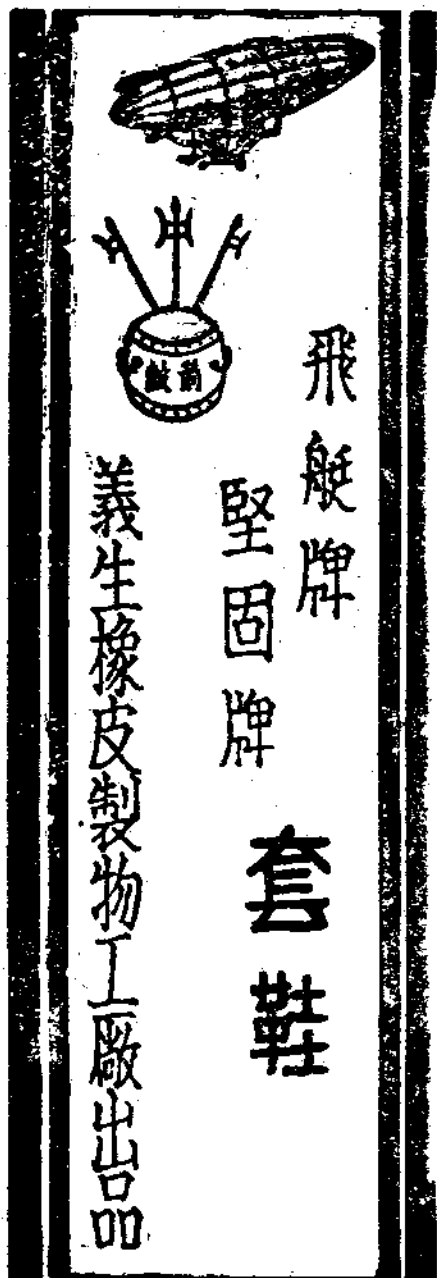 飛艇牌
堅固牌
套鞋
義生橡皮製物工廠出品